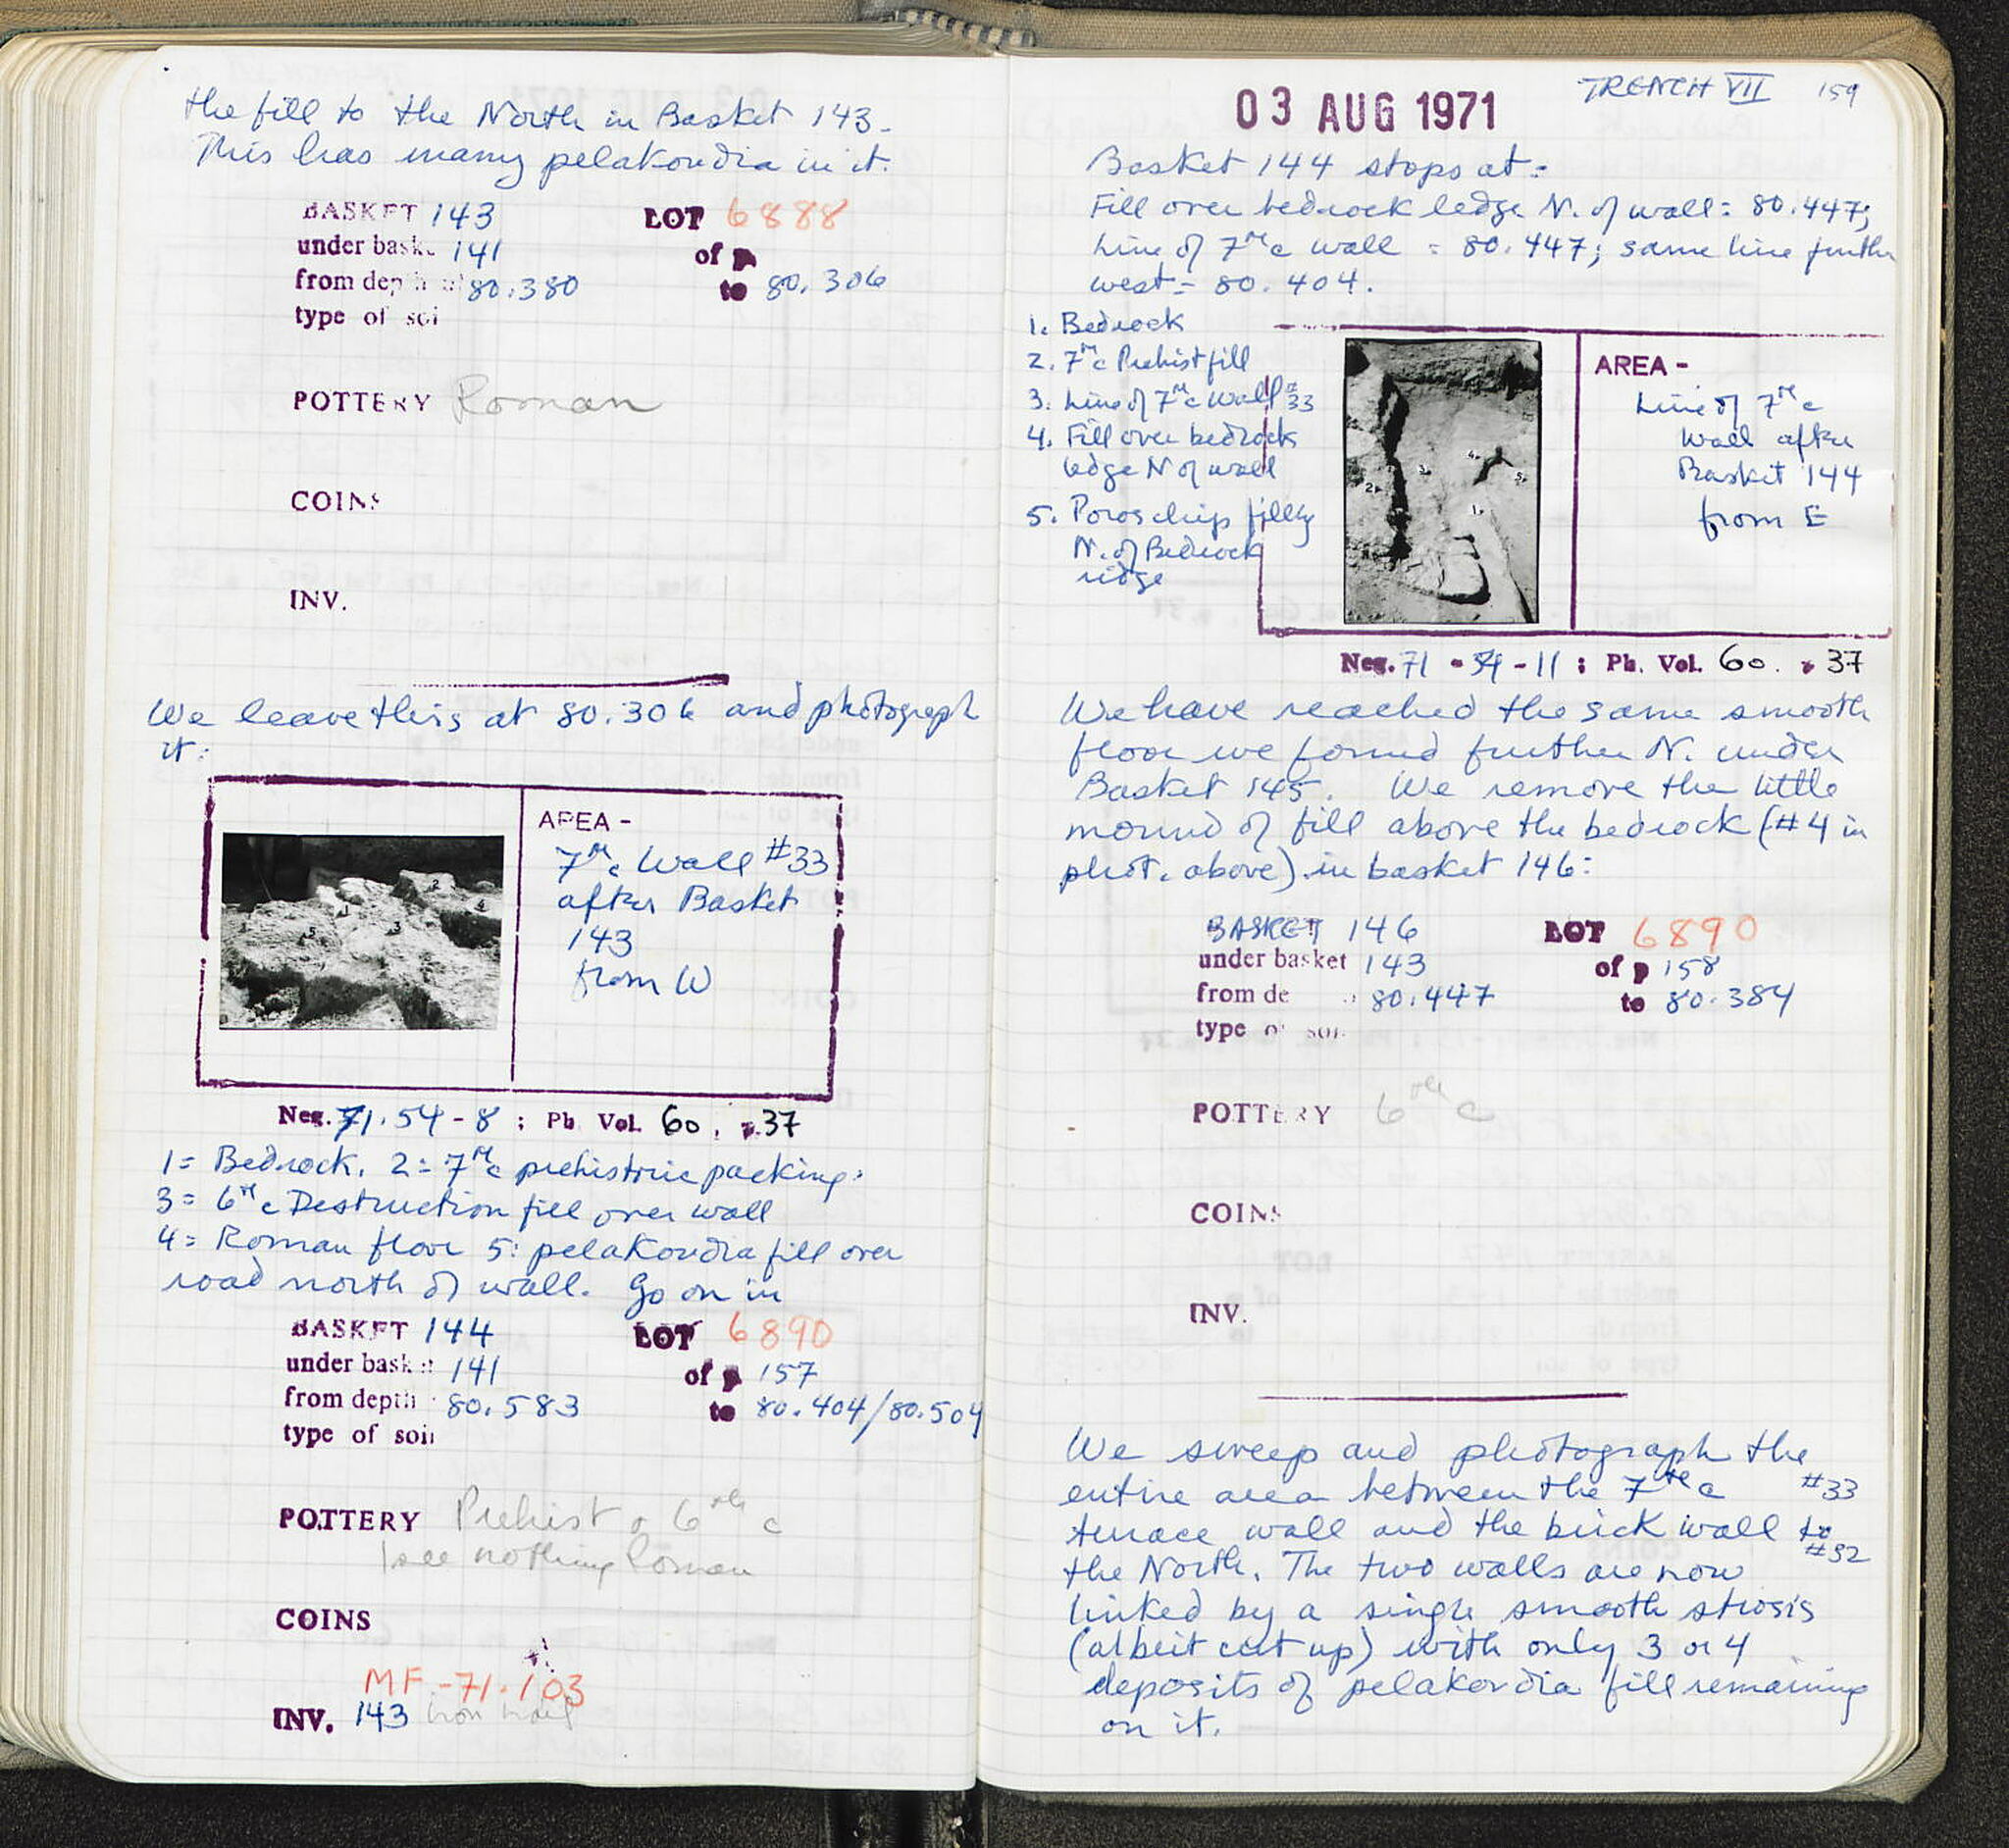 the fill to the North in Basket 143.
This has many pelakoudia in it.
BASKET 143 LOT 6888
under bask. 141 of p
from dep 80.380 to 80.306
type of soi
POTTERY Roman
COINS
INV.
We leave this at 80.306 and photograph
it:
AREA -
7th c Wall #33
after Basket
143
from W
Neg. 71.54-8 ; Ph Vol. 60, p.37
1= Bedrock, 2= 7th c prehistoric packing.
3= 6th c Destruction fill over wall
4= Roman floor 5: pelakoudia fill over
road north of wall. Go on in
BASKET 144 LOT 6890
under bask t 141 of p 157
from depth 80.583 to 80.404/80.504
type of soil
POTTERY Prehist & 6th c
I see nothing Roman
COINS
MF-71-103
INV. 143 iron nail
TRENCH VII 159
03 AUG 1971
Basket 144 stops at:
Fill over bedrock ledge N. of wall: 80.447;
Line of 7th c wall = 80.447; same line further
west = 80.404.
1. Bedrock
2. 7th c Prehist fill
3. Line of 7th c Wall #33
4. Fill over bedrock
ledge N of wall
5. Poros chips filling
N. of Bedrock
ridge
AREA -
Line of 7th c
Wall after
Basket 144
from E
Neg. 71 - 54 - 11 ; Ph. Vol. 60. p 37
We have reached the same smooth
floor we found further N. under
Basket 145. We remove the little
mound of fill above the bedrock (#4 in
phot. above) in basket 146:
BASKET 146 LOT 6890
under basket 143 of p 158
from de 80.447 to 80.384
type of soi
POTTERY 6th c
COINS
INV.
We sweep and photograph the
entire area between the 7th c #33
terrace wall and the brick wall to
#32
the North. The two walls are now
linked by a single smooth strosis
(albeit cut up) with only 3 or 4
deposits of pelakoudia fill remaining
on it.